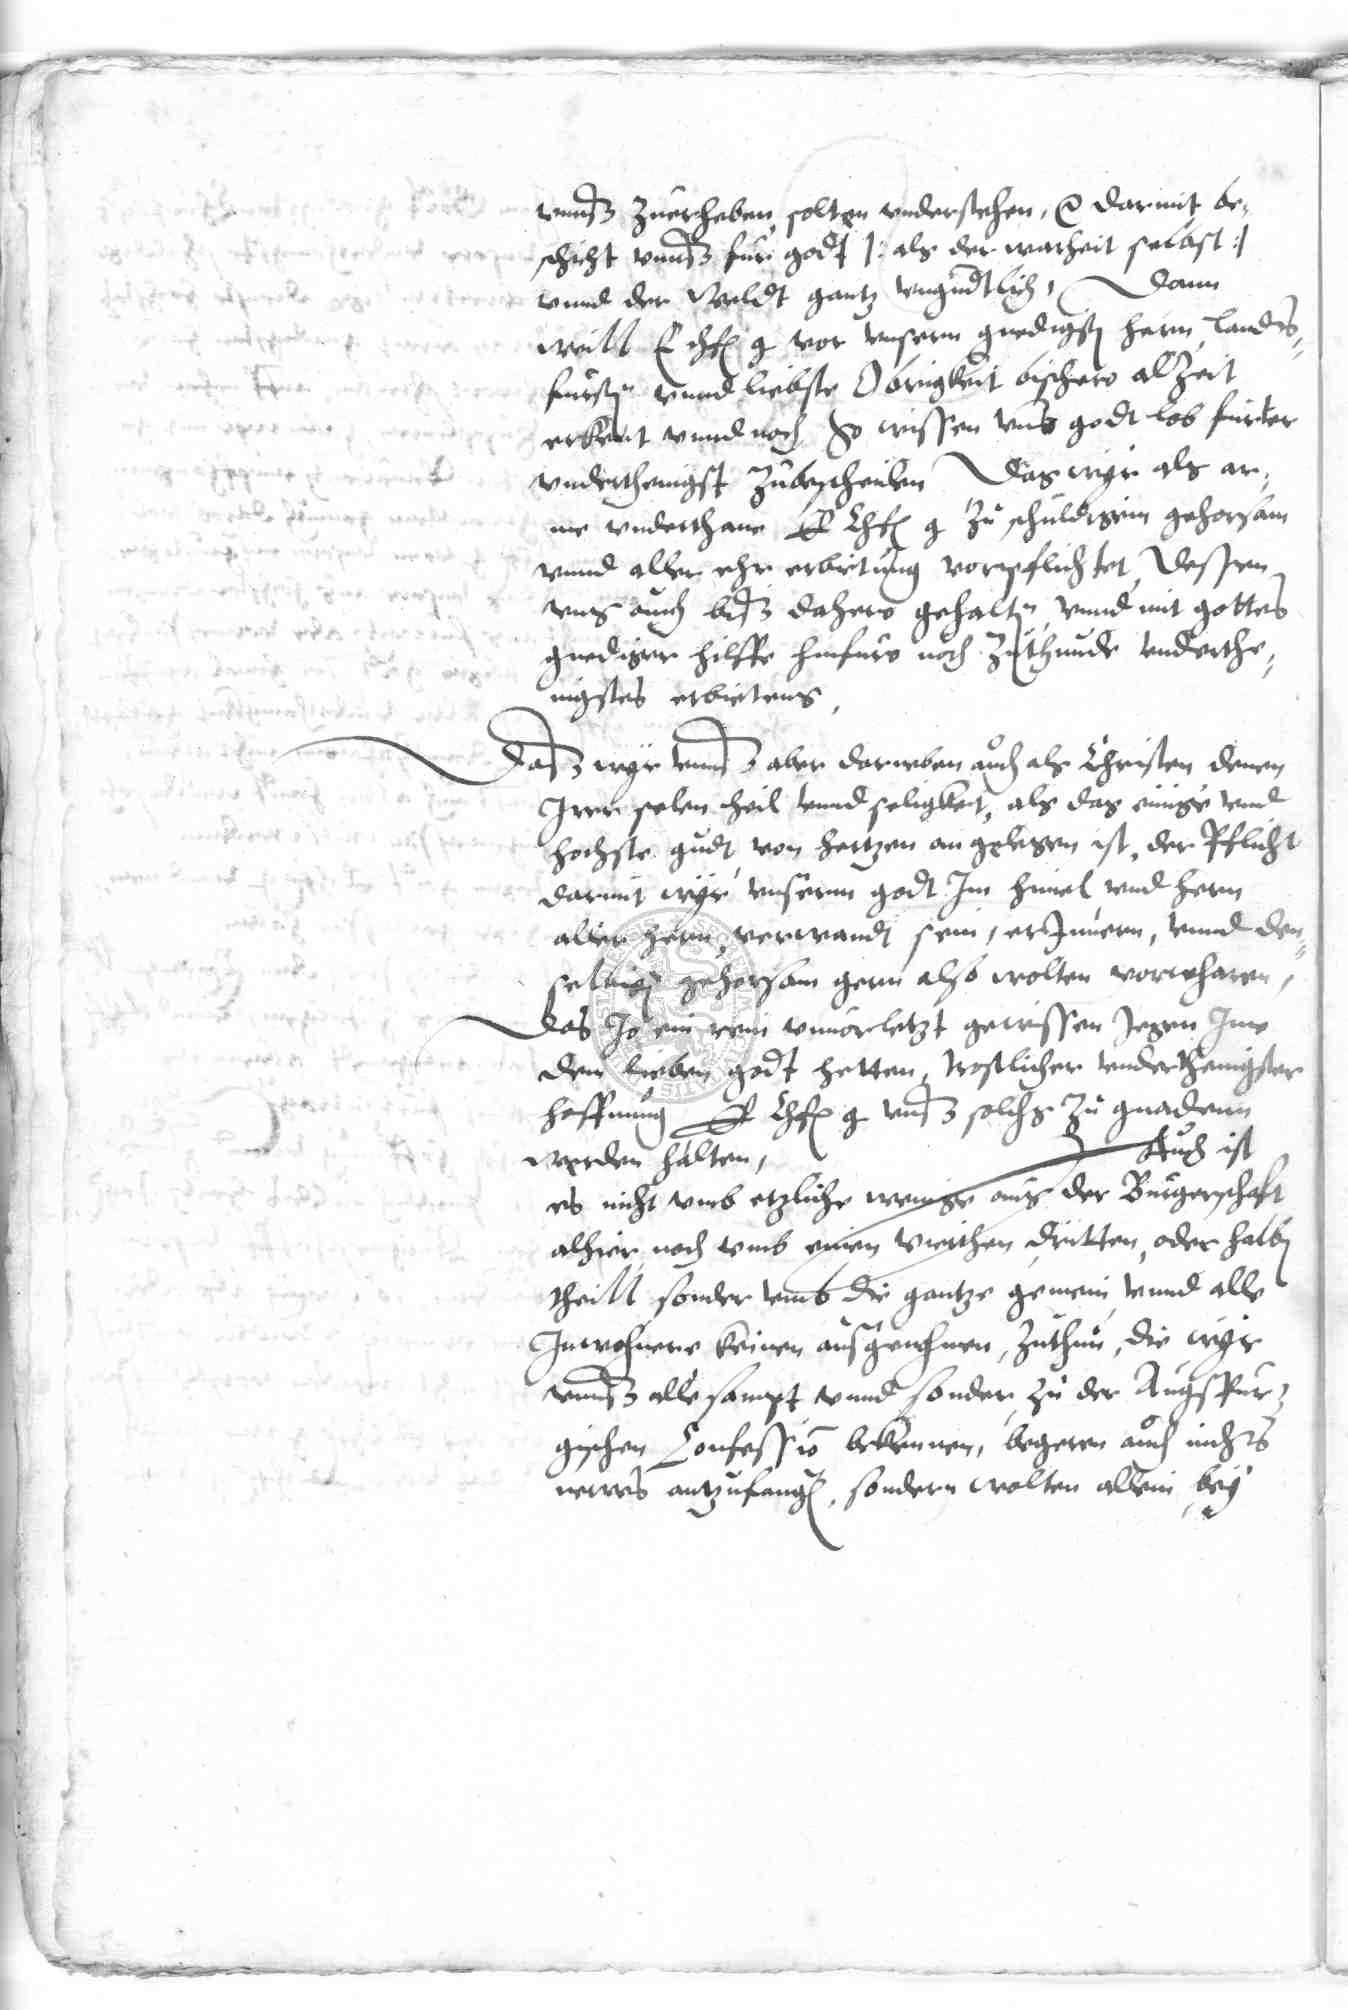 vnnß zuerheben solten vnderstehen, darmit be-
schicht vnnß fur godt |: als der warheit selbst :|
vnnd der Weldt gantz vngudtlich, Dann
weill E chf g vor vnsern gnedigsten hern, landts-
fursten vnnd liebste Obrigkeit bishero alzeit
erkent vnnd noch, So wissen vns godt lob furter
vnderthenigst zubescheiden Das wyr als ar-
me vnderthane E Chf g zu schuldigem gehorsam
vnnd aller ehr erbietung vorpflichtet, Dessen
vns auch biß dahero gehalten, vnnd mit gottes
gnediger hilffe hinfuro noch zuthunde vnderthe-
nigstes erbietens,
Daß wyr vnnß aber darneben auch als Christen denen
Irer selen heil vnnd seligkeit, als das einige vnd
hochste gudt von hertzen angelegen ist, der Pflicht
darmit wyr vnserm godt Im himel vnd hern
aller hern, verwandt sein, erInnern, vnnd den-
selbigen gehorsam gern also wolten vorwharen,
Das Jo ein rein vnuorletzt gewissen Jegen Ime
den lieben godt hetten, trostlicher vnderthenigster
hoffnung E Chf g vnß solchs zu gnadenn
werden halten, Auch ist
es nicht vmb etzliche wenige aus der Burgerschaft
alhier, noch vmb einen vierthen dritten, oder halben
theill sonder vmb die gantze gemein vnnd alle
Inwohnere keinen ausgenohmen, zuthun, die wyr
vnnß alle sampt vnnd sonder, zu der Augspur-
gischen Confession bekennen, begeren auch nichts
newes antzufangen, sondern wolten allein bey